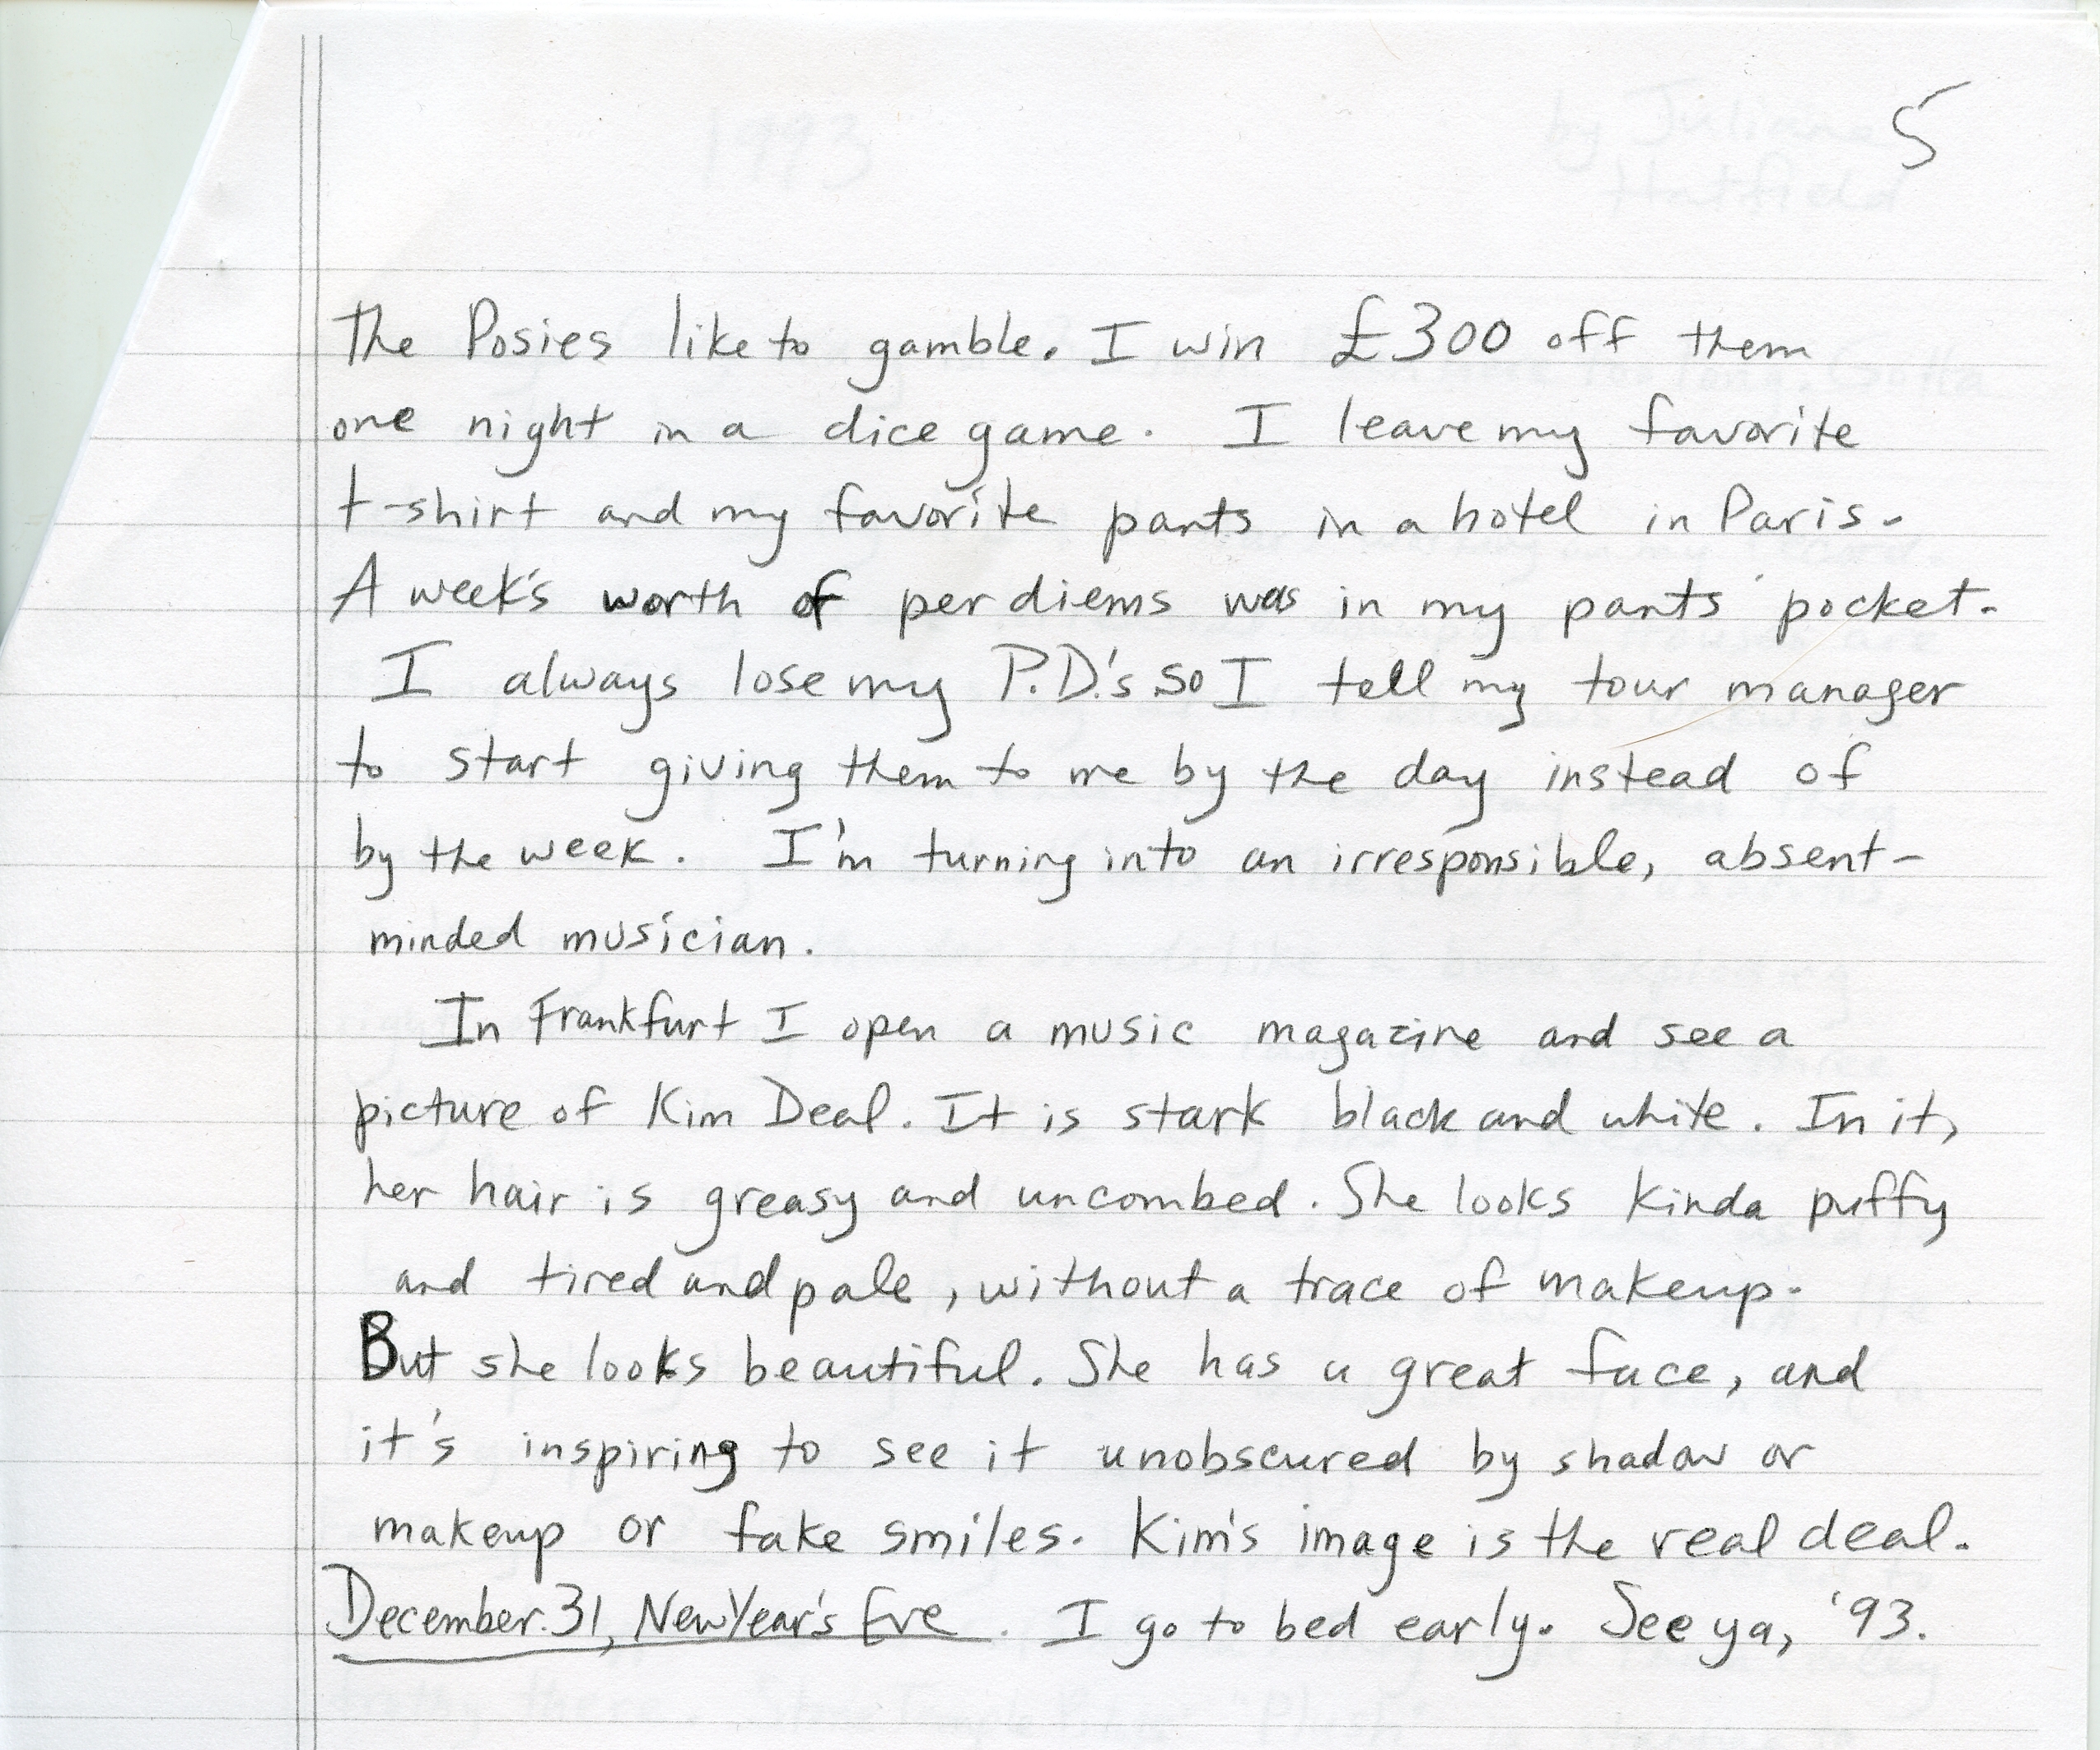 by Juliana
1993
Hatfield
5
The Posies like to gamble. I win £300 off them
one night in a dice game. I leave my favorite
t-shirt and my favorite pants in a hotel in Paris.
A week's worth of per diems was in my pants pocket.
I always lose my P.D.'s so I tell my tour manager
to start giving them to me by the day instead of
by the week. I'm turning into an irresponsible, absent-
minded musician.
In Frankfurt I open a music magazine and see a
picture of Kim Deal. It is stark black and white. In it,
her hair is greasy and uncombed. She looks kinda puffy
and tired and pale, without a trace of makeup.
But she looks beautiful. She has a great face, and
it's inspiring to see it unobscured by shadow or
makeup or fake smiles. Kim's image is the real deal.
December 31, New Year's Eve. I go to bed early. See ya, '93.